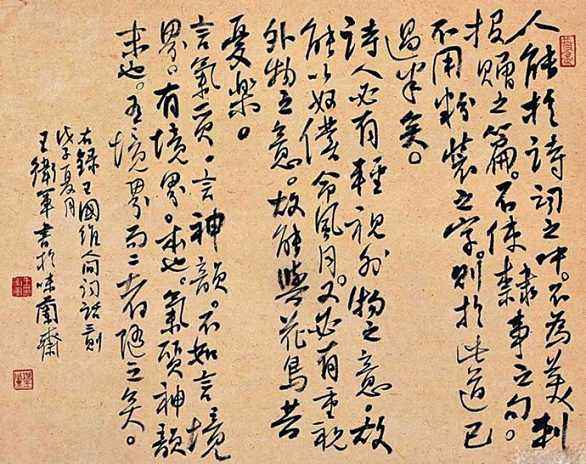 人能於詩詞之中。不為美刺
投贈之篇。不使隸事之句。
不用粉裝之字。則於此道已
過半矣。
詩人必有輕視外物之意。故
能以奴僕命風月。又必有重視
外物之意。故能與花鳥共
憂樂。
言氣質。言神韻。不如言境
界。有境界。本也。氣質神韻
末也。有境界而二者隨之矣。
右錄王國維人间詞話三則
戊子夏月
王衛軍書於味蘭齋